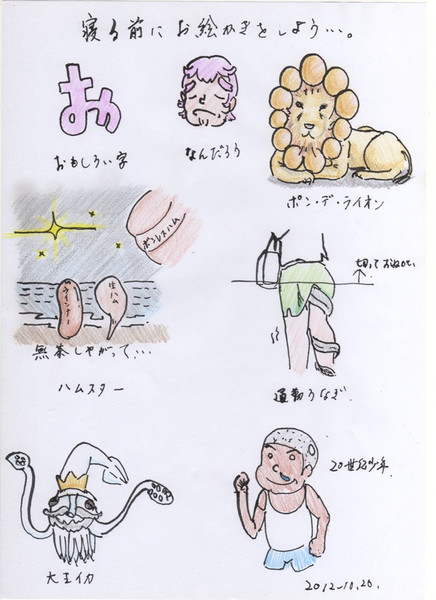 寝る前にお絵かきをしよう…。
おか
おもしろい字
なんだろう
ポン・デ・ライオン
ボンレスハム
ウインナー
生ハム
無茶しやがって…
ハムスター
通勤うなぎ
大王イカ
20世紀少年
2012-10.20.